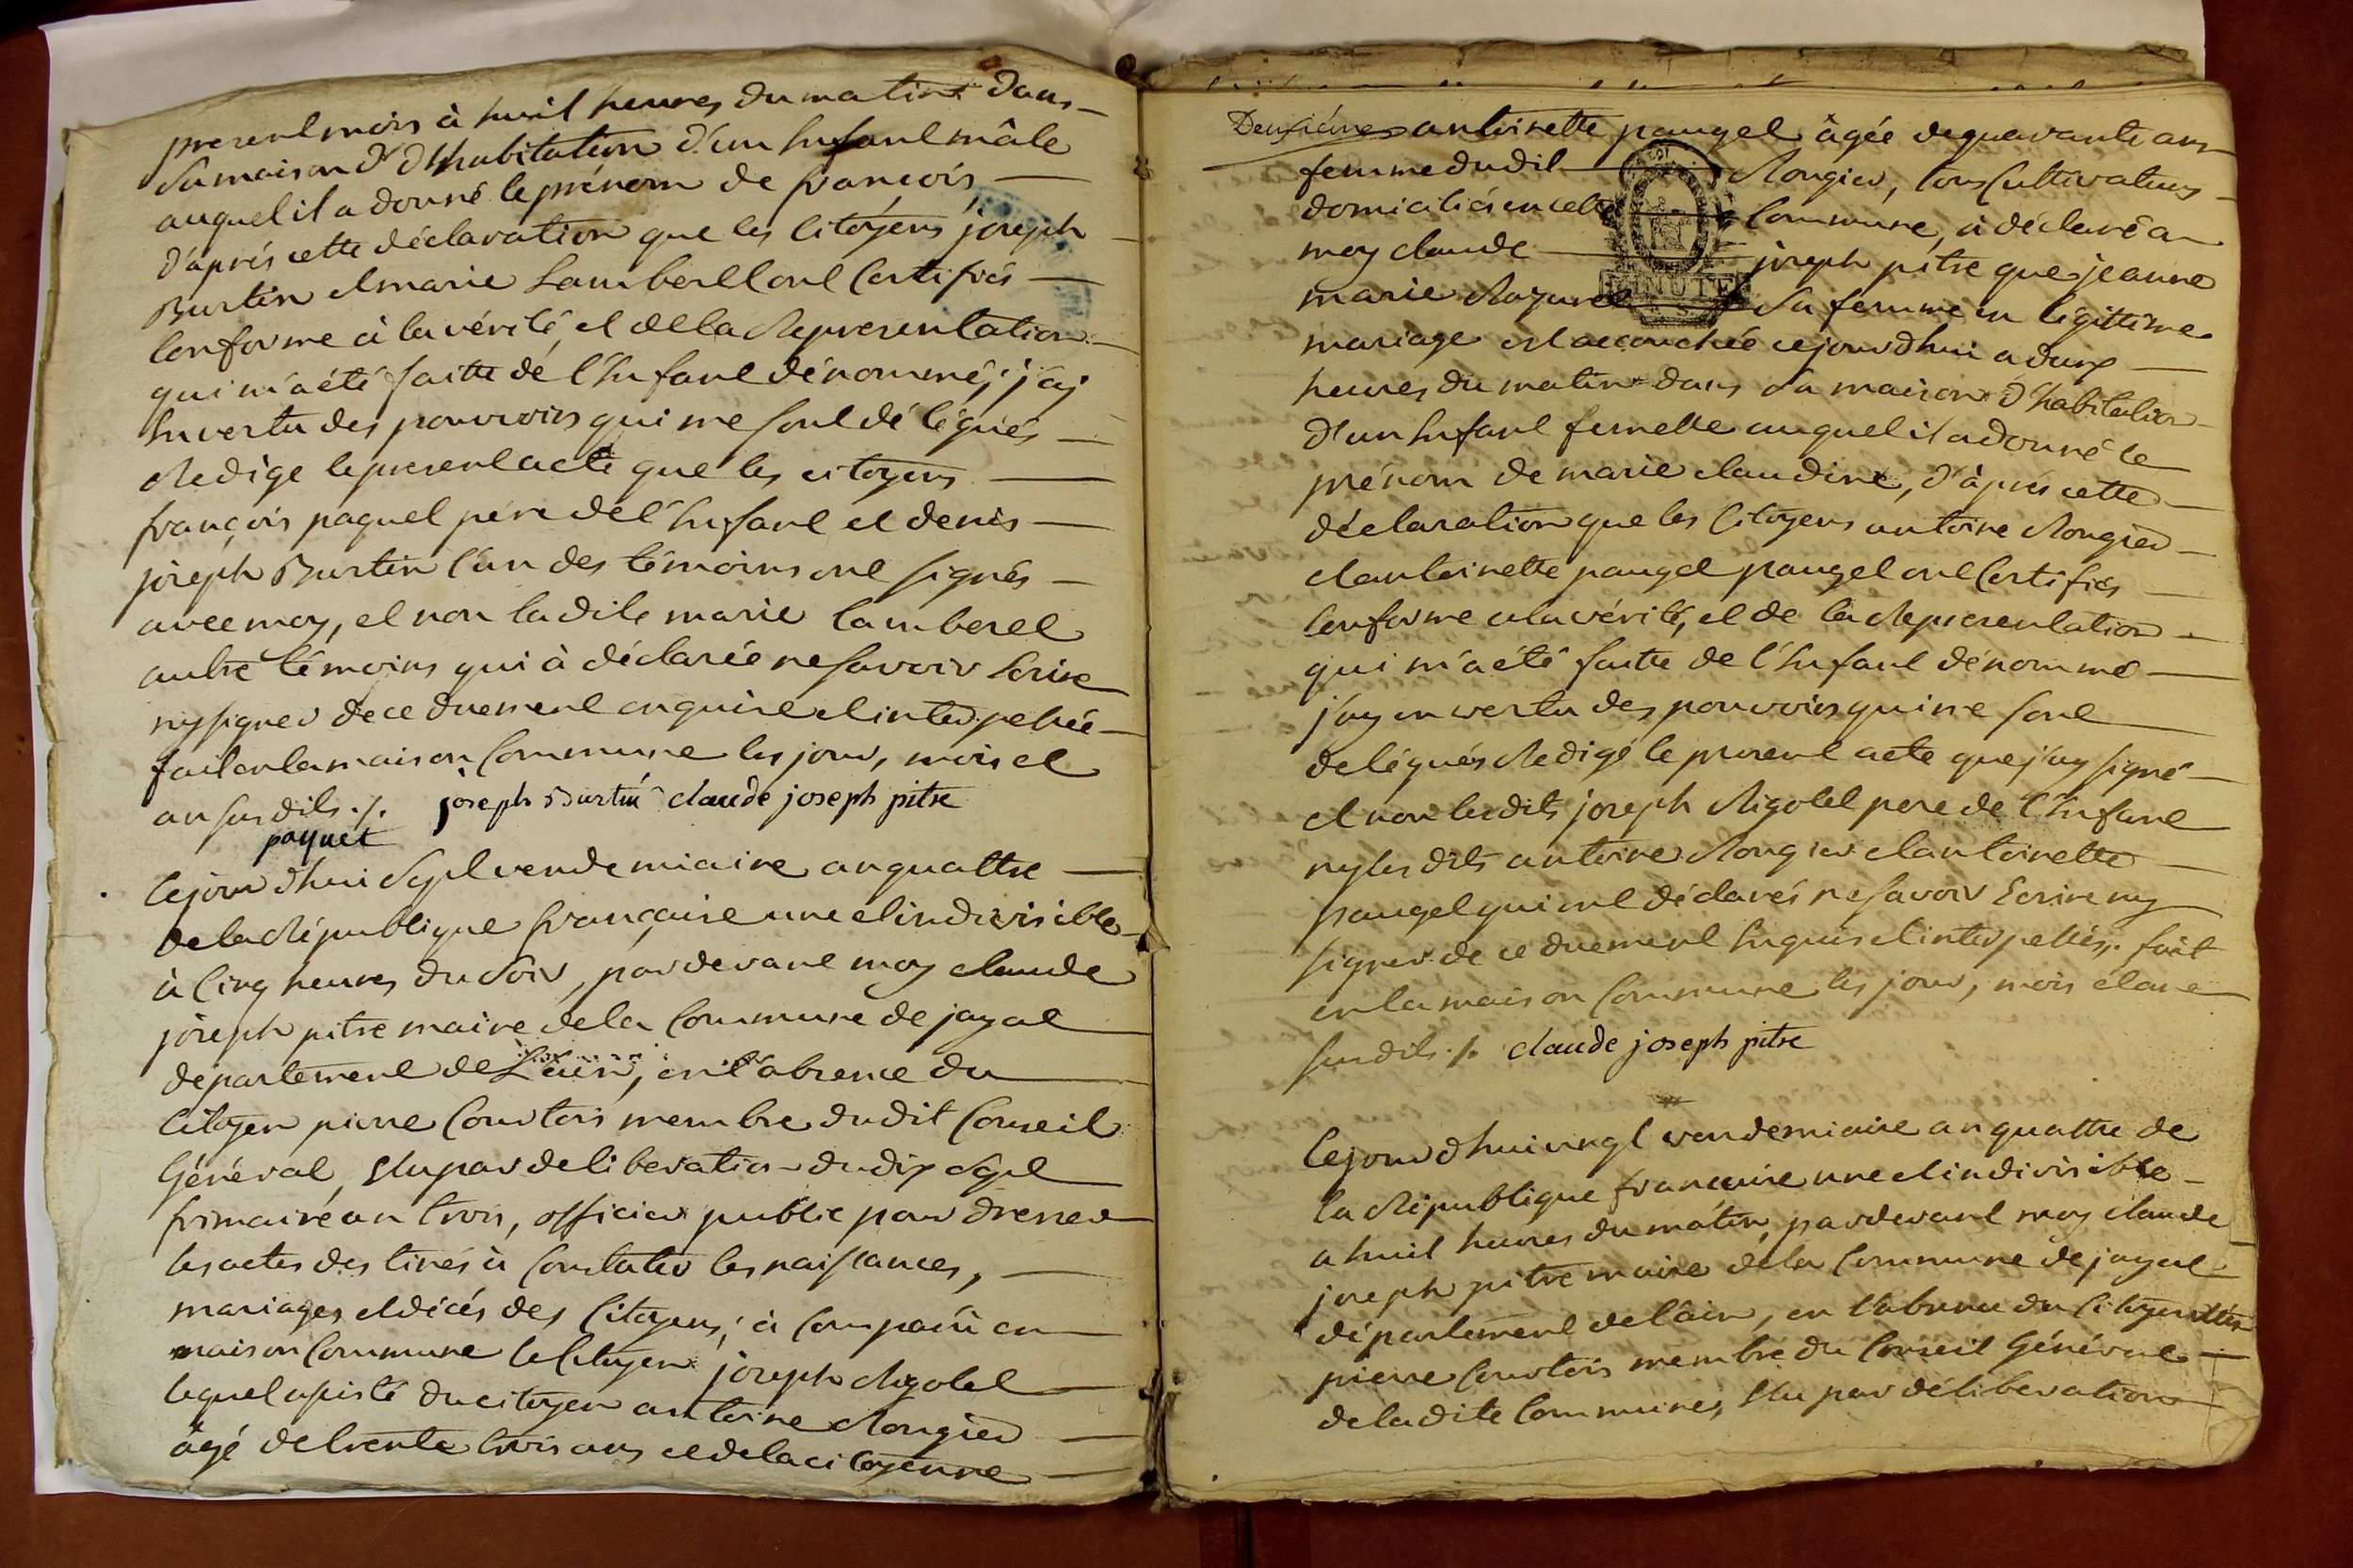 present mois à huit heures du matin dans
sa maison d'dhabitation d'un Enfant mâle
auquel il a donné le prénom de françois
d'après cette déclaration que les Citoyens joseph
Burtin et marie Lamberel ont Certifiés
Conforme à la vérité, et de la Representation
qui m'a été faitte de l'Enfant dénommé, j'ay
En vertu des pouvoirs qui me sont délégués
Redigé le present acte que les citoyens
françois paquet père de l'Enfant et denis
joseph Burtin l'un des témoins ont signés
avec moy, et non la dite marie lamberel
autre témoins qui à déclarée ne savoir Ecrire
ny signer de ce duement enquise et interpellée
fait en la maison Commune les jour, mois et
an susdits ./. joseph Burtin claude joseph pitre
paquet
Cejourd'hui Sept vendemiaire an quattre
de la République française une et indivisible
à Cinq heures du soir, pardevant moy claude
joseph pitre maire de la Commune de jayat
departement de L'ain, en l'absence du
Citoyen pierre Courtois membre dudit Conseil
Général, Elu par deliberation du dix Sept
frimaire an trois, officier public pour dresser
les actes destinés à Constater les naissances,
mariages et décés des Citoyens, à Comparû en
maison Commune le Citoyen joseph Rigolet
lequel assisté du citoyen antoine Rongier
âgé de trente trois ans et de la citoyenne
Deuxième antoinette paugel âgée de quarante ans
femme dudit Rongier, tous Cultivateurs
domiciliés en cette Commune, à déclaré a
moy claude joseph pitre que jeanne
marie sa femme en légittime
MINUTE
mariage est accouchée cejourd'hui a deux
heures du matin dans sa maison d'habitation
d'un Enfant femelle auquel il a donné le
prénom de marie claudine, d'après cette
déclaration que les Citoyens antoine Rongier
et antoinette paugel paugel ont Certifiés
Conforme a la vérité, et de la Representation
qui m'a été faitte de l'Enfant dénommé
j'ay en vertu des pouvoirs qui me sont
delégués Redigé le present acte que j'ay signé
et non lesdits joseph Rigolet pere de l'Enfant
ny lesdits antoine Rongier et antoinette
paugel qui ont déclarés ne savoir Ecrire ny
signer de ce duement Enquis et interpellés. fait
en la maison Commune les jour, mois et an
susdits ./. claude joseph pitre
Cejourd'hui vingt vendemiaire an quattre de
la République francaise une et indivisible
a huit heures du matin, pardevant moy claude
joseph pitre maire de la Commune de jayat
département de l'ain, en l'absence du Citoyen
pierre Courtois membre du Conseil Général
de la dite Commune, Elu par déliberation